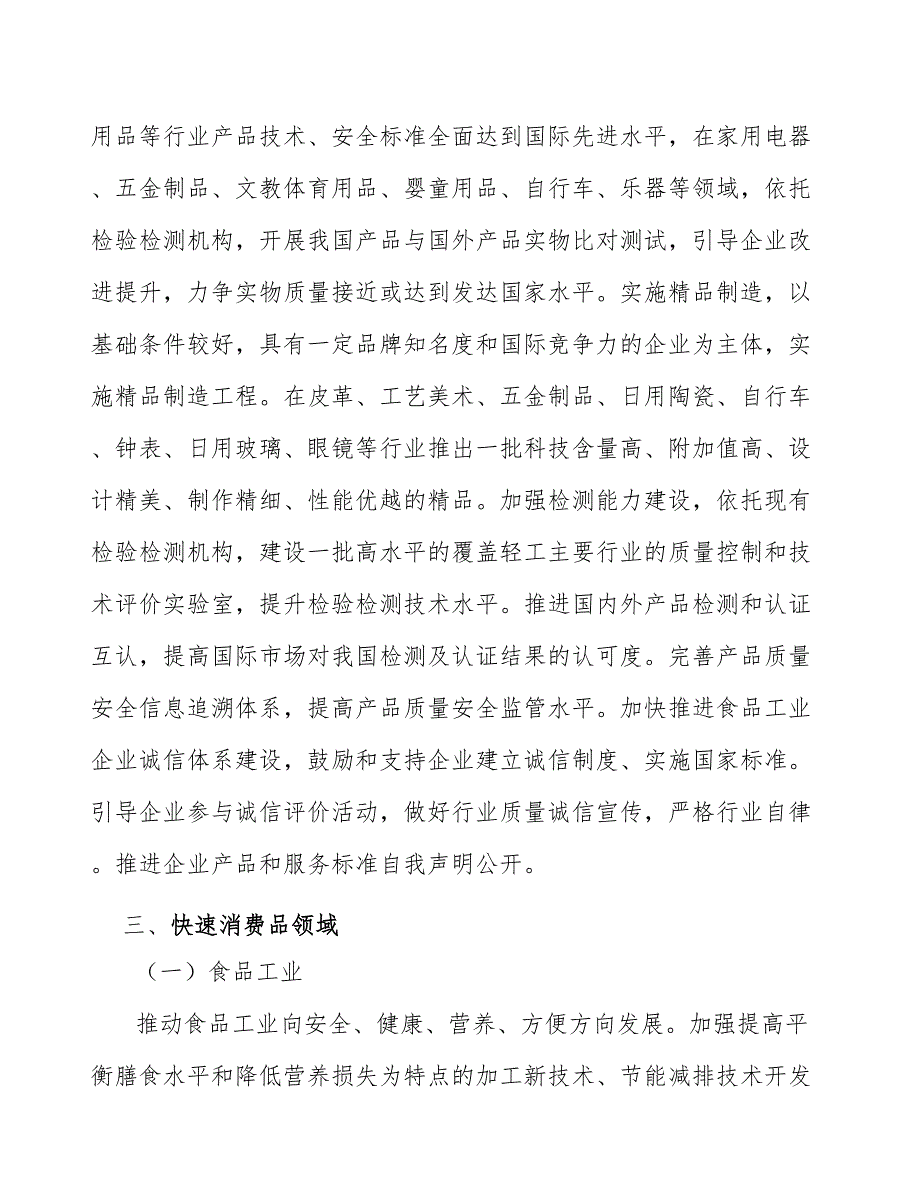 用品等行业产品技术、安全标准全面达到国际先进水平，在家用电器
、五金制品、文教体育用品、婴童用品、自行车、乐器等领域，依托
检验检测机构，开展我国产品与国外产品实物比对测试，引导企业改
进提升，力争实物质量接近或达到发达国家水平。实施精品制造，以
基础条件较好，具有一定品牌知名度和国际竞争力的企业为主体，实
施精品制造工程。在皮革、工艺美术、五金制品、日用陶瓷、自行车
、钟表、日用玻璃、眼镜等行业推出一批科技含量高、附加值高、设
计精美、制作精细、性能优越的精品。加强检测能力建设，依托现有
检验检测机构，建设一批高水平的覆盖轻工主要行业的质量控制和技
术评价实验室，提升检验检测技术水平。推进国内外产品检测和认证
互认，提高国际市场对我国检测及认证结果的认可度。完善产品质量
安全信息追溯体系，提高产品质量安全监管水平。加快推进食品工业
企业诚信体系建设，鼓励和支持企业建立诚信制度、实施国家标准。
引导企业参与诚信评价活动，做好行业质量诚信宣传，严格行业自律
。推进企业产品和服务标准自我声明公开。
三、快速消费品领域
（一）食品工业
推动食品工业向安全、健康、营养、方便方向发展。加强提高平
衡膳食水平和降低营养损失为特点的加工新技术、节能减排技术开发